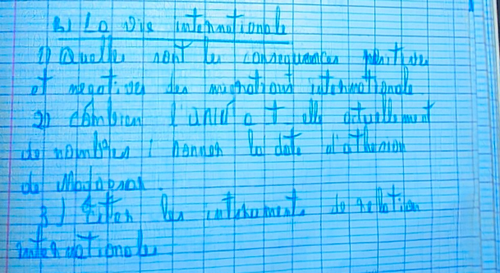 B) La vie internationale
1) Quelles sont les consequences positives
et negatives des migrations internationale
2) combien l'UNICEF a t elle actuellement
de nombres ! Donner la date d'adhesion
de Madagascar.
3) Citer les intruments de relation
internationales